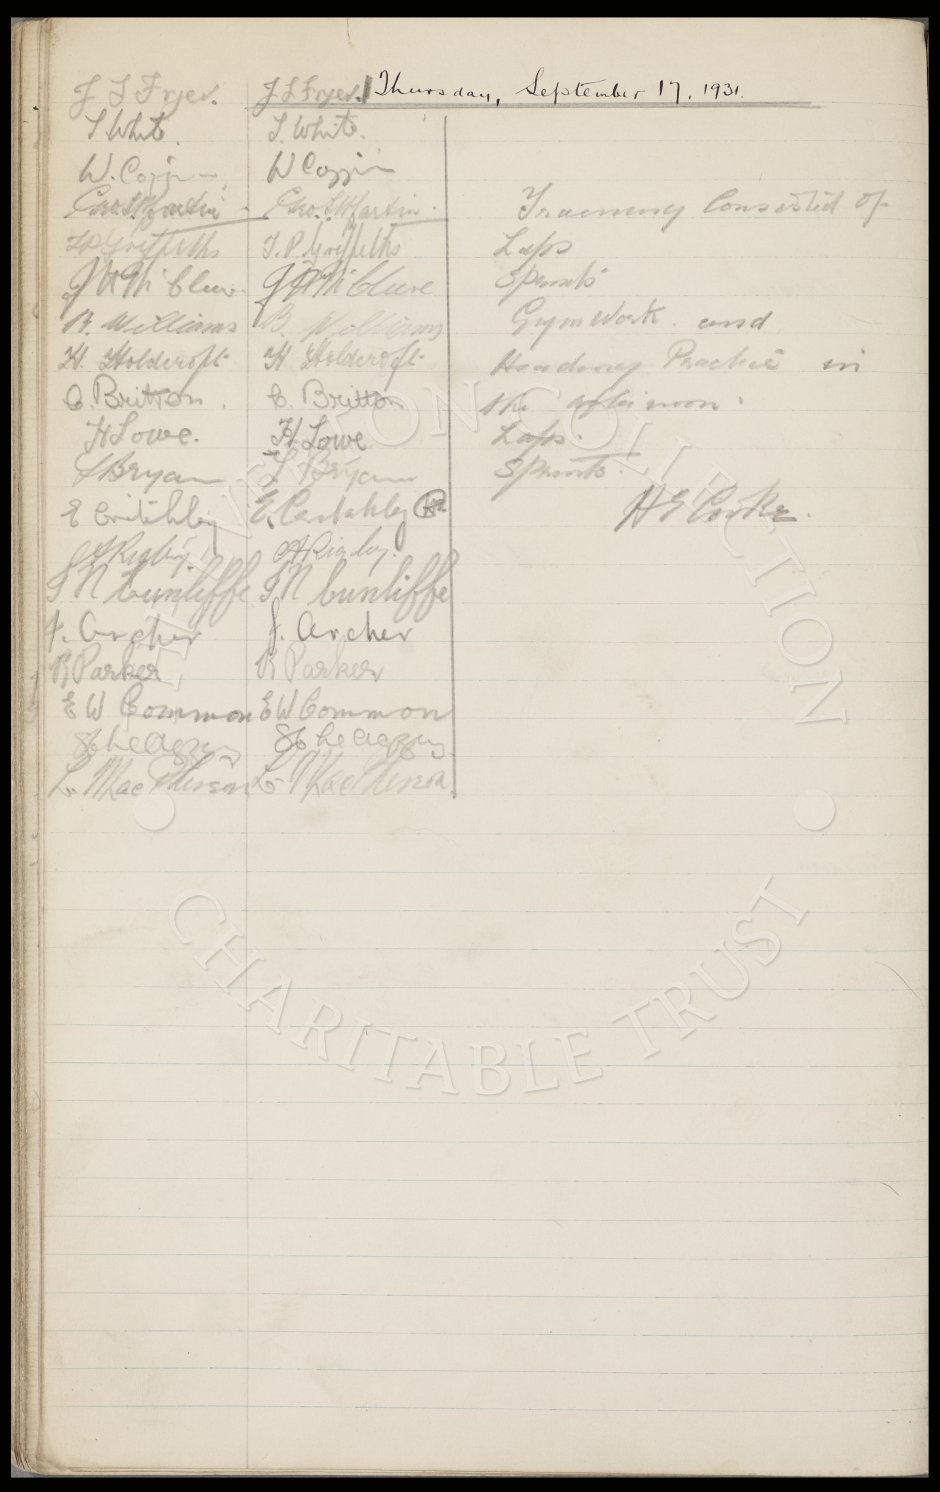 Thursday, September 17. 1931.
J L Fryer. J L Fryer.
T White. T. White.
W. Coggin W Coggin
Geo. S. Martin Geo. S. Martin.
T P Griffiths T. P. Griffiths
J H McClure. J H McClure
B. Williams B. Williams
H. Holdcroft H Holdcroft
C. Britton. C. Britton
H Lowe. H. Lowe
T Bryan T Bryan
E Critchley E. Critchley
A Rigby. A Rigby.
J N Cunliffe J N Cunliffe
J. Archer J. Archer
R Parker R Parker
E W Common E W Common
L. MacPherson L. MacPherson
Training Consisted of
Laps
Sprints
Gym Work. and
Heading Practice in
the afternoon.
Laps.
Sprints.
H E Cooke.
EVERTON COLLECTION
CHARITABLE TRUST